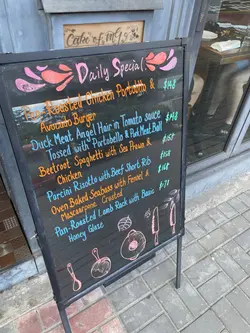 Cake of
Daily Special
Roasted Chicken Portobello &
Avocado Burger
$148
Duck Meat Angel Hair in Tomato sauce
tossed with Portobello & Duck Meat Ball
Beetroot Spaghetti with Sea Prawn &
Chicken
Porcini Risotto with Beef Short Rib
Oven Baked Seabass with Fennel &
Mascarpone Crusted
Pan-Roasted Lamb Rack with
Honey Glaze